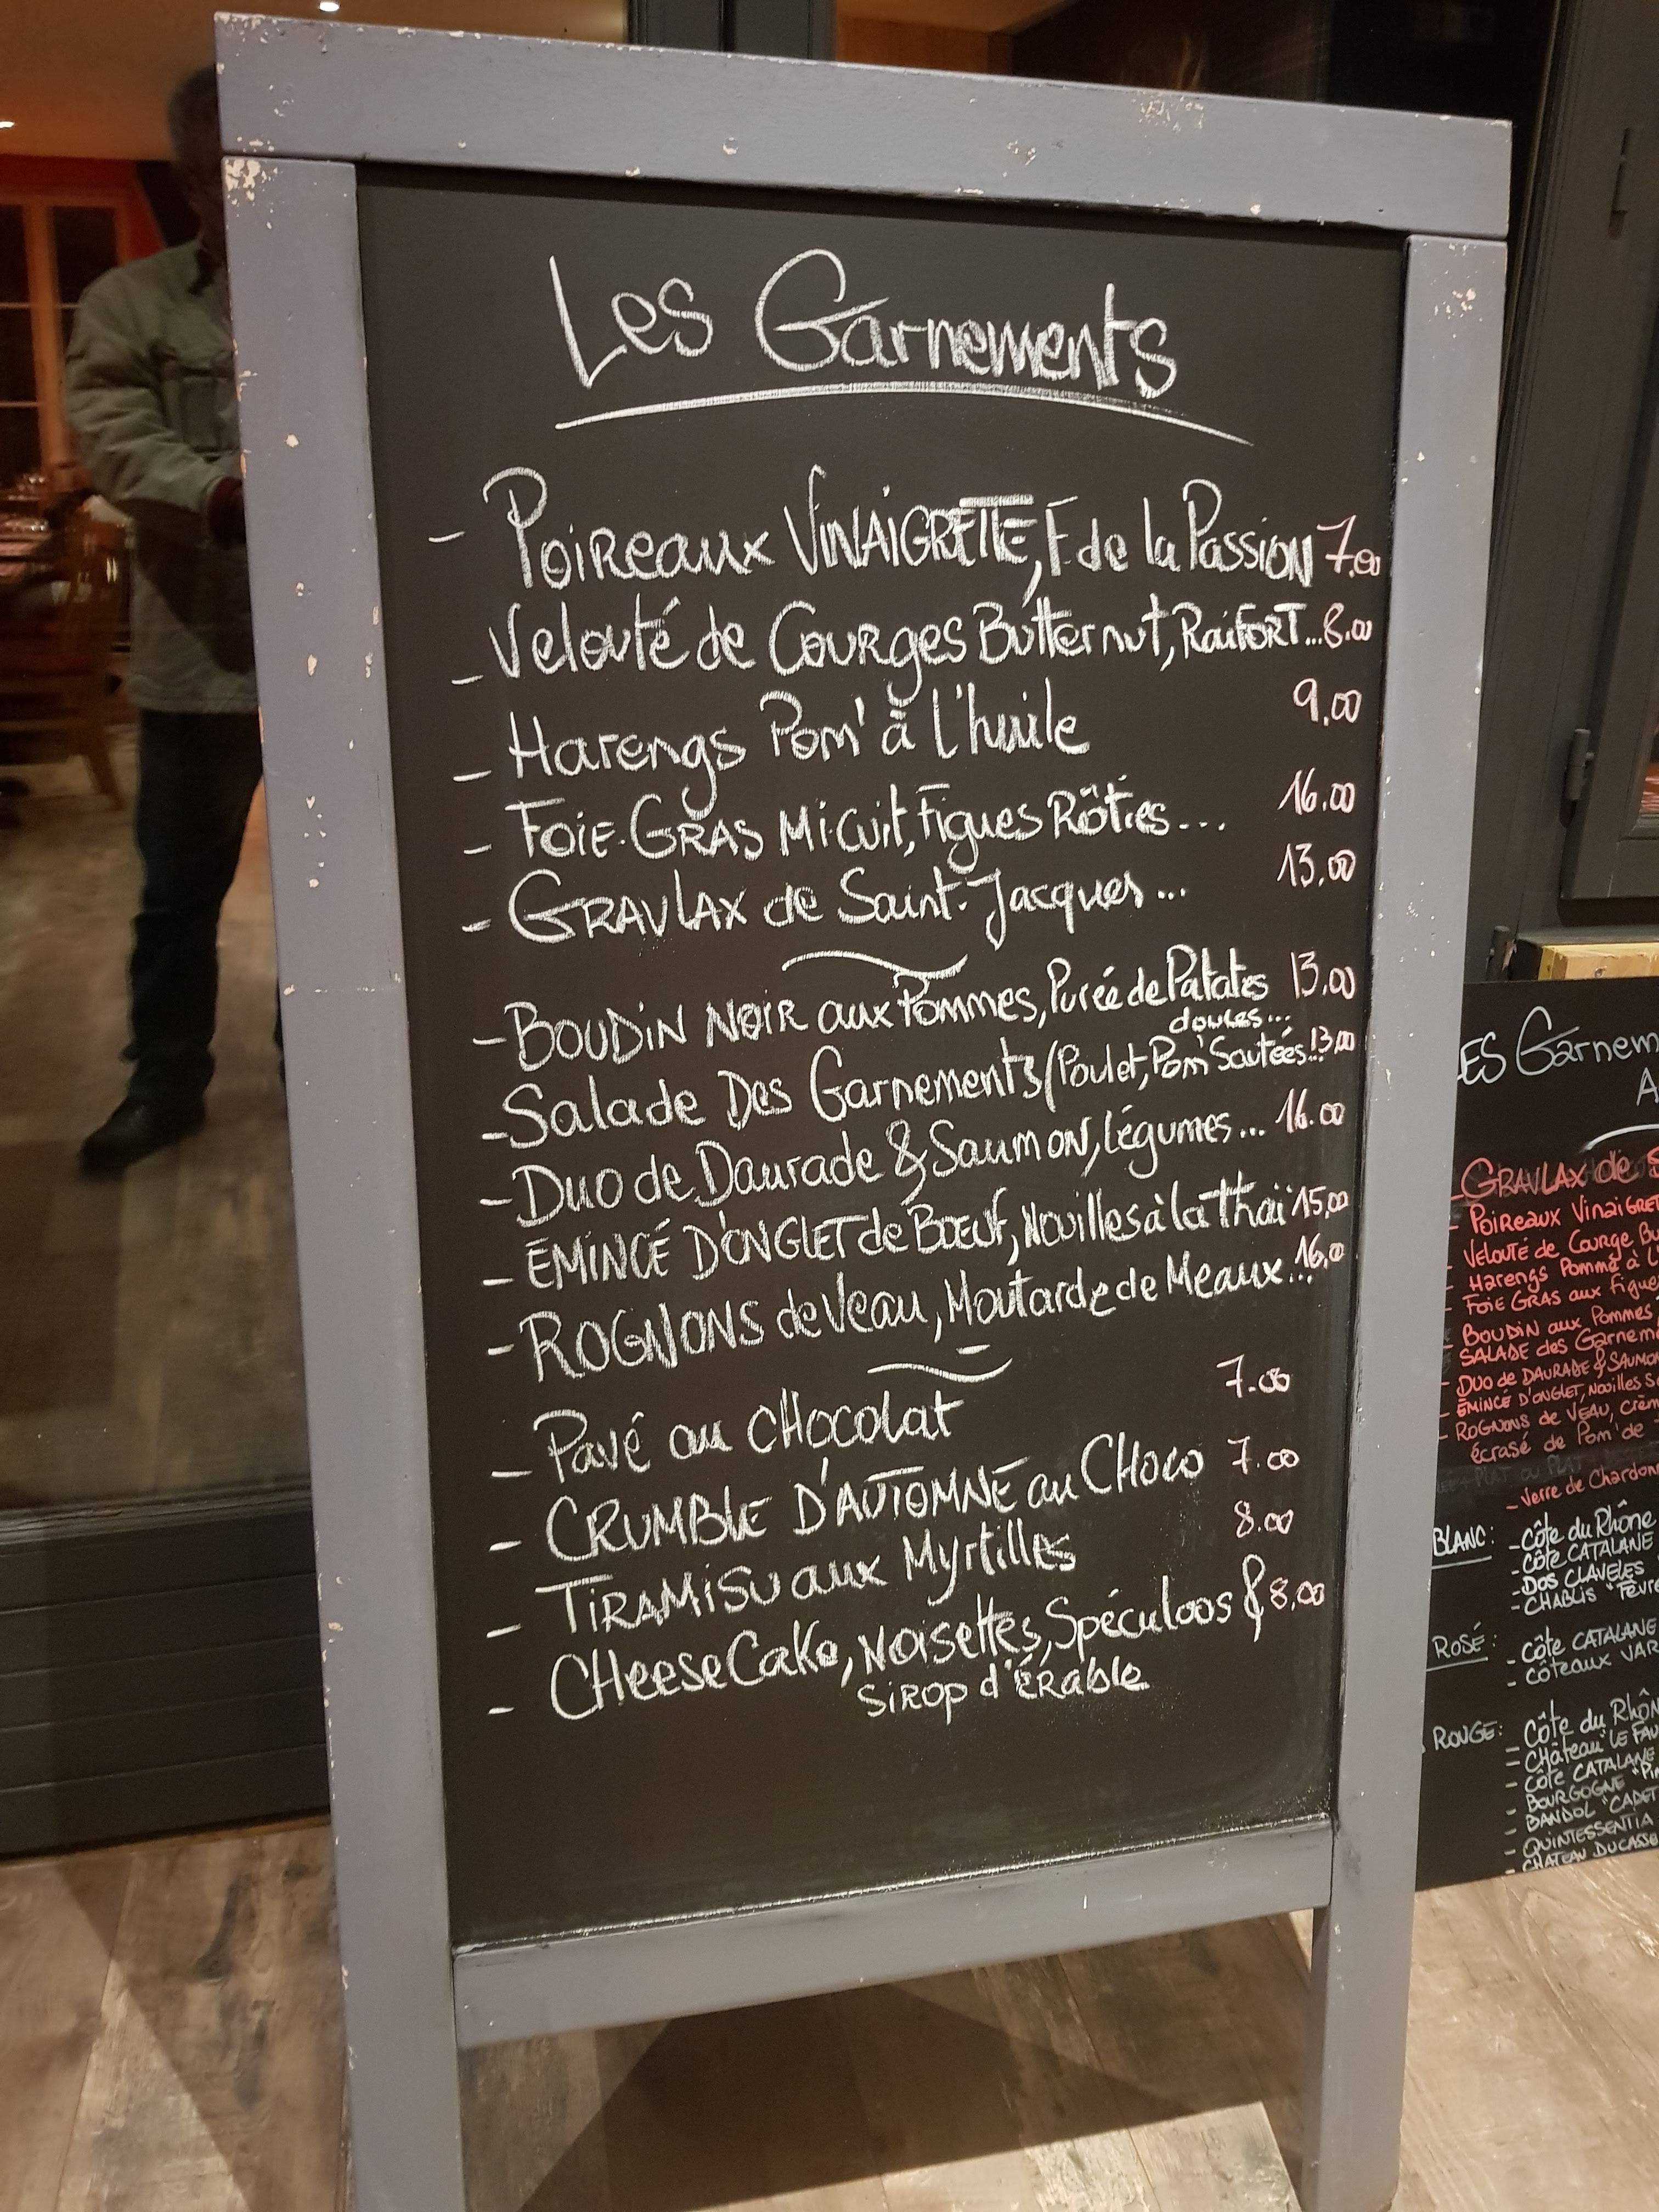 Les Garnements
- Poireaux Vinaigrette, F de la Passion 7.00
- Velouté de Courges Butternut, Raifort... 8.00
- Harengs Pom' à l'huile 9,00
- Foie-Gras Mi-Cuit, Figues Rôties... 16.00
- Gravlax de Saint-Jacques... 13,00
- Boudin Noir aux Pommes, Purée de Patates 13,00
douces...
- Salade Des Garnements (Poulet, Pom' Sautées.. 13,00
- Duo de Daurade & Saumon, Légumes... 16.00
- Émincé D'Onglet de Boeuf, Nouilles à la thaï 15,00
- Rognons de Veau, Moutarde de Meaux... 16,00
- Pavé au Chocolat 7.00
- Crumble D'Automne au Choco 7.00
- Tiramisu aux Myrtilles 8.00
- CheeseCake, Noisettes, Spéculoos & 8,00
Sirop d'Érable
ES Garnem
A
- Gravlax de S
- Poireaux Vinaigret
- Velouté de Courge Bu
- Harengs Pomme à L'
- Foie Gras aux Figue
- Boudin aux Pommes
- Salade des Garneme
- Duo de Daurade & Saumo
- Émincé D'onglet, Nouilles S
- Rognons de Veau, Crèm
écrasé de Pom' de
- Verre de Chardon
Blanc: - Côte du Rhône
- Côte Catalane
- Dos Claveles
- Chablis "Fèvre
Rosé: - Côte Catalane
- Côteaux Var
Rouge: - Côte du Rhôn
- Château "Le Fau
- Côte Catalane
- Bourgogne "Pin
- Bandol "Cadet
- Quintessentia
- Château Ducasse